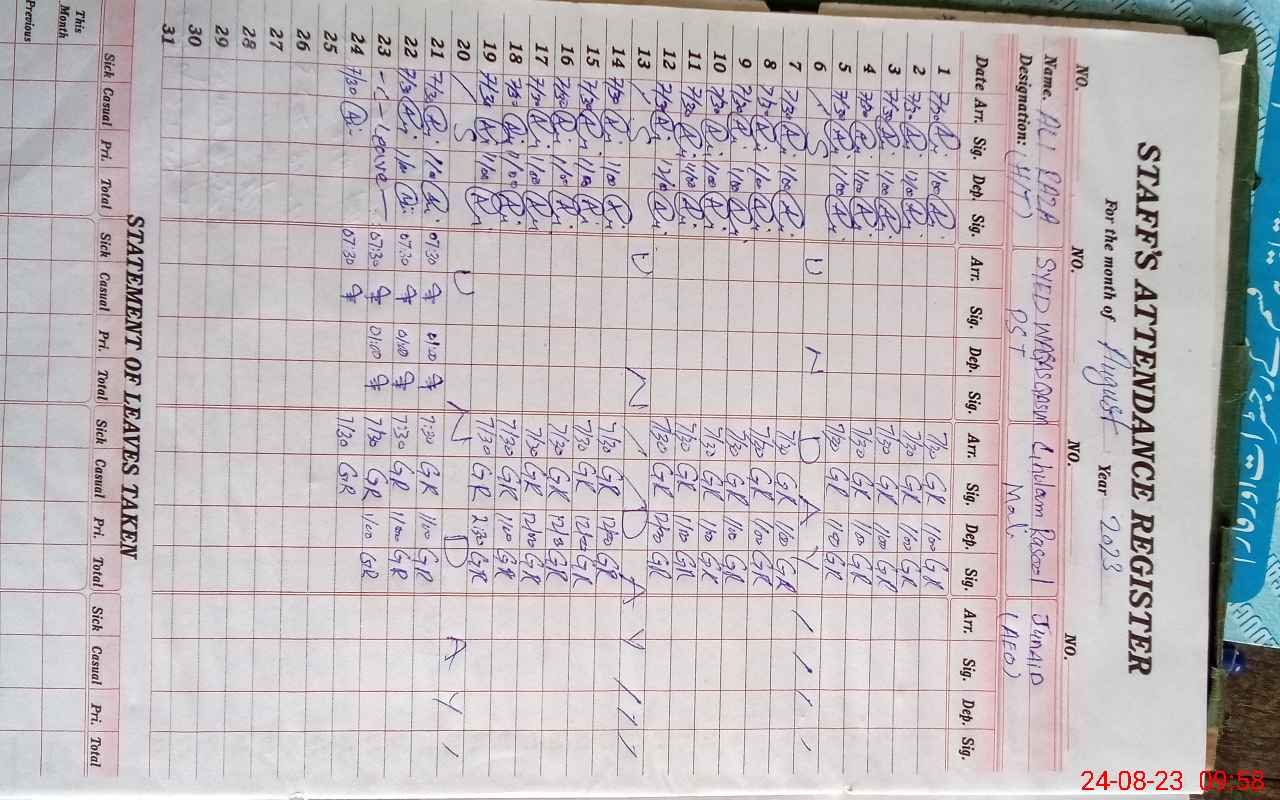 STAFF'S ATTENDANCE REGISTER
For the month of August Year 2023
NO. NO. NO. NO.
Name. ALI RAZA SYED WAQAS QASM Ghulam Rasool JUNAID
Designation: (H/T) PST Mali (AEO)
Date Arr. Sig. Dep. Sig. Arr. Sig. Dep. Sig. Arr. Sig. Dep. Sig. Arr. Sig. Dep. Sig.
1 7/30 1/00 7/30 GR 1/00 GR
2 7/30 1/00 7/30 GR 1/00 GR
3 7/30 1/00 7/30 GR 1/00 GR
4 7/30 1/00 7/30 GR 1/00 GR
5 7/30 1/00 7/30 GR 1/00 GR
6 S U N D A Y
7 7/30 1/00 7/30 GR 1/00 GR
8 7/30 1/00 7/30 GR 1/00 GR
9 7/30 1/00 7/30 GR 1/00 GR
10 7/30 1/00 7/30 GR 1/00 GR
11 7/30 1/00 7/30 GR 1/00 GR
12 7/30 12/00 7/30 GR 12/00 GR
13 S U N D A Y
14 7/30 1/00 7/30 GR 12/00 GR
15 7/30 1/00 7/30 GR 12/00 GR
16 7/30 1/00 7/30 GR 12/00 GR
17 7/30 1/00 7/30 GR 12/00 GR
18 7/30 1/00 7/30 GR 1/00 GR
19 7/30 1/00 7/30 GR 2:30 GR
20 S U N D A Y
21 7/30 1/00 07:30 01:00 7:30 GR 1/00 GR
22 7/30 1/00 07:30 01:00 7:30 GR 1/00 GR
23 Leave 07:30 01:00 7/30 GR 1/00 GR
24 7/30 07:30 7/30 GR
25
26
27
28
29
30
31
STATEMENT OF LEAVES TAKEN
Sick Casual Pri. Total Sick Casual Pri. Total Sick Casual Pri. Total Sick Casual Pri. Total
This Month
Previous
24-08-23 09:58